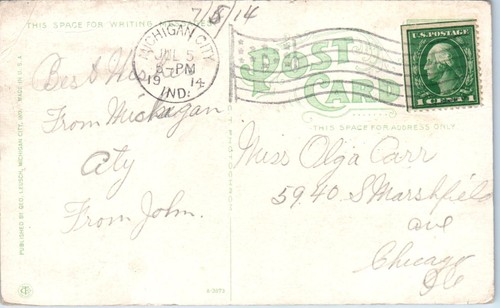 7/5/14
THIS SPACE FOR WRITING
MICHIGAN CITY,
JUL 5
-PM
1914
IND.
POST
CARD
U.S. POSTAGE
1 CENT 1
THIS SPACE FOR ADDRESS ONLY
Best Wishes
From Michigan
City
From John.
Miss Olga Carr
5940 S Marshfield
ave
Chicago
Ill
PUBLISHED BY GEO. LEUSCH, MICHIGAN CITY, IND. MADE IN U.S.A.